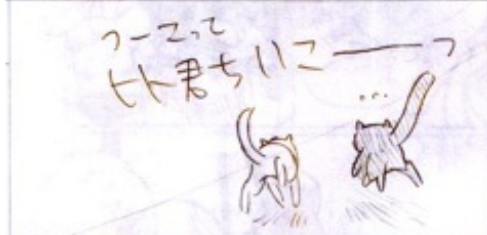 つーこって
ヒト君ちいこーーっ
…